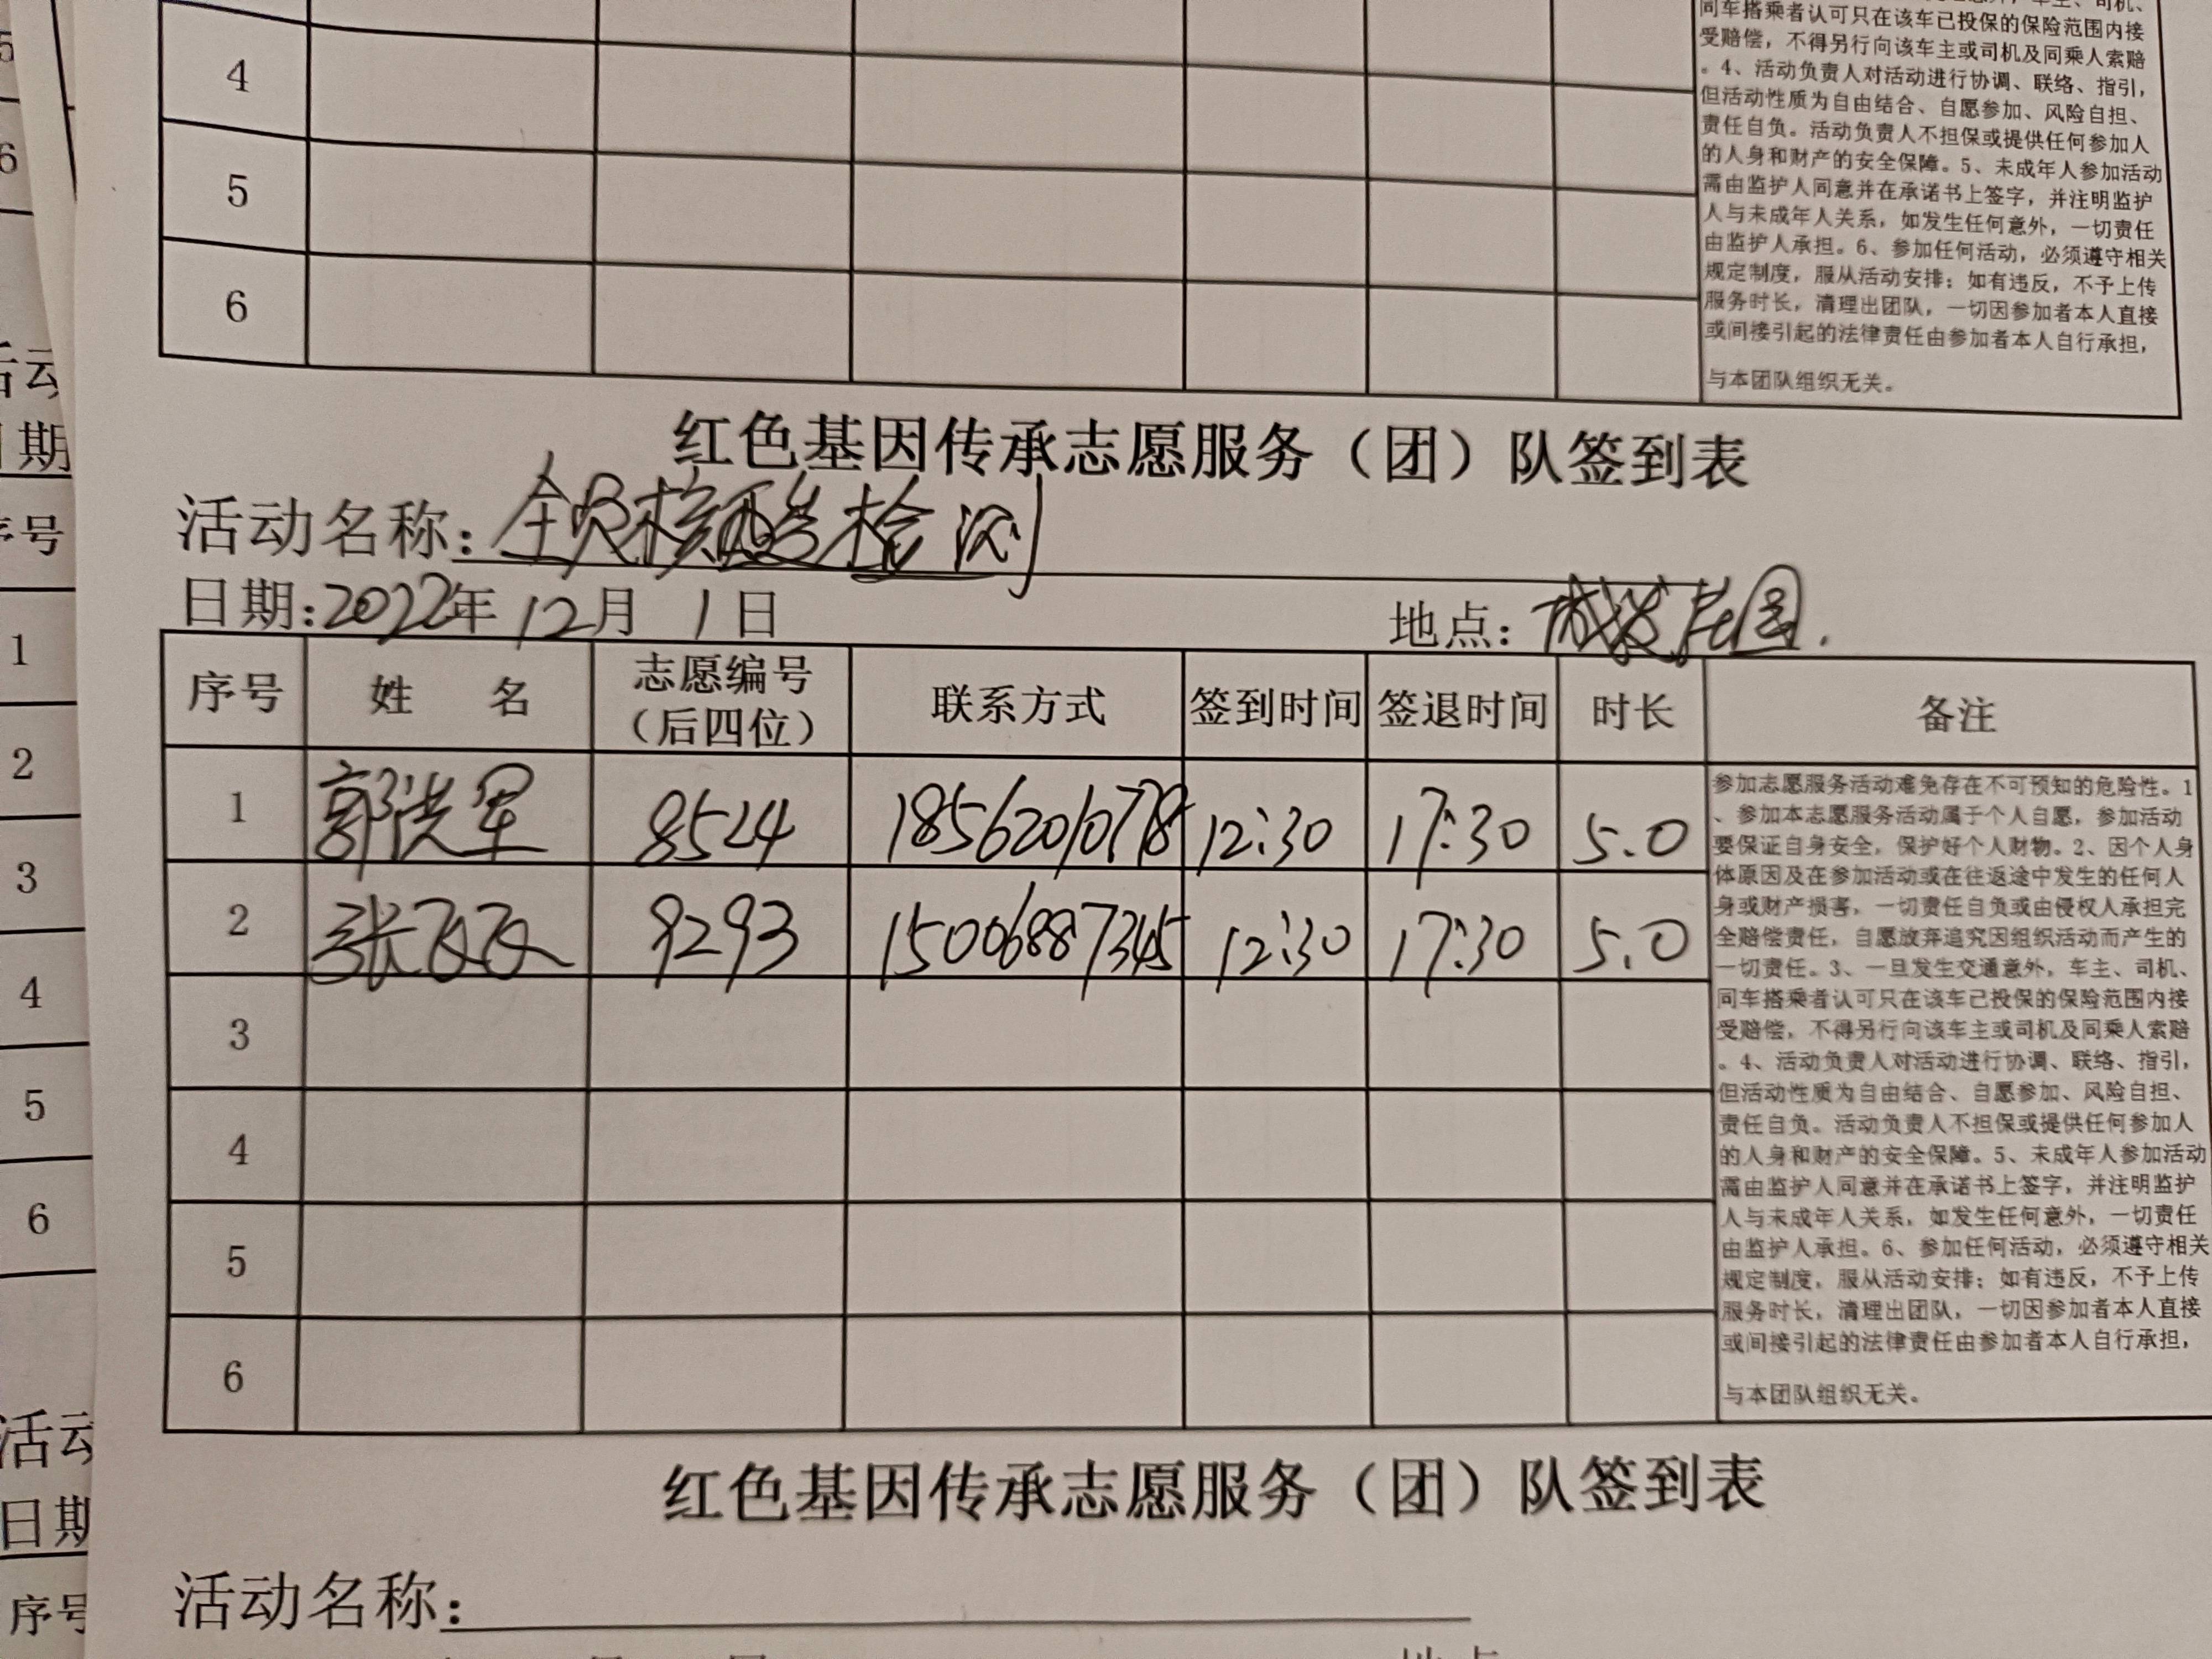 同车搭乘者认可只在该车已投保的保险范围内接
受赔偿，不得另行向该车主或司机及同乘人索赔
。4、活动负责人对活动进行协调、联络、指引，
但活动性质为自由结合、自愿参加、风险自担、
责任自负。活动负责人不担保或提供任何参加人
的人身和财产的安全保障。5、未成年人参加活动
需由监护人同意并在承诺书上签字，并注明监护
人与未成年人关系，如发生任何意外，一切责任
由监护人承担。6、参加任何活动，必须遵守相关
规定制度，服从活动安排；如有违反，不予上传
服务时长，清理出团队，一切因参加者本人直接
或间接引起的法律责任由参加者本人自行承担，
与本团队组织无关。
4
5
6
红色基因传承志愿服务（团）队签到表
活动名称：全员核酸检测
日期：2022年12月1日 地点：城发花园.
序号 姓 名 志愿编号（后四位） 联系方式 签到时间 签退时间 时长 备注
1 郭洪军 8524 18562010778 12:30 17:30 5.0
2 张飞飞 9293 15006887345 12:30 17:30 5.0
3
4
5
6
参加志愿服务活动难免存在不可预知的危险性。1
、参加本志愿服务活动属于个人自愿，参加活动
要保证自身安全，保护好个人财物。2、因个人身
体原因及在参加活动或在往返途中发生的任何人
身或财产损害，一切责任自负或由侵权人承担完
全赔偿责任，自愿放弃追究因组织活动而产生的
一切责任。3、一旦发生交通意外，车主、司机、
同车搭乘者认可只在该车已投保的保险范围内接
受赔偿，不得另行向该车主或司机及同乘人索赔
。4、活动负责人对活动进行协调、联络、指引，
但活动性质为自由结合、自愿参加、风险自担、
责任自负。活动负责人不担保或提供任何参加人
的人身和财产的安全保障。5、未成年人参加活动
需由监护人同意并在承诺书上签字，并注明监护
人与未成年人关系，如发生任何意外，一切责任
由监护人承担。6、参加任何活动，必须遵守相关
规定制度，服从活动安排；如有违反，不予上传
服务时长，清理出团队，一切因参加者本人直接
或间接引起的法律责任由参加者本人自行承担，
与本团队组织无关。
红色基因传承志愿服务（团）队签到表
活动名称：